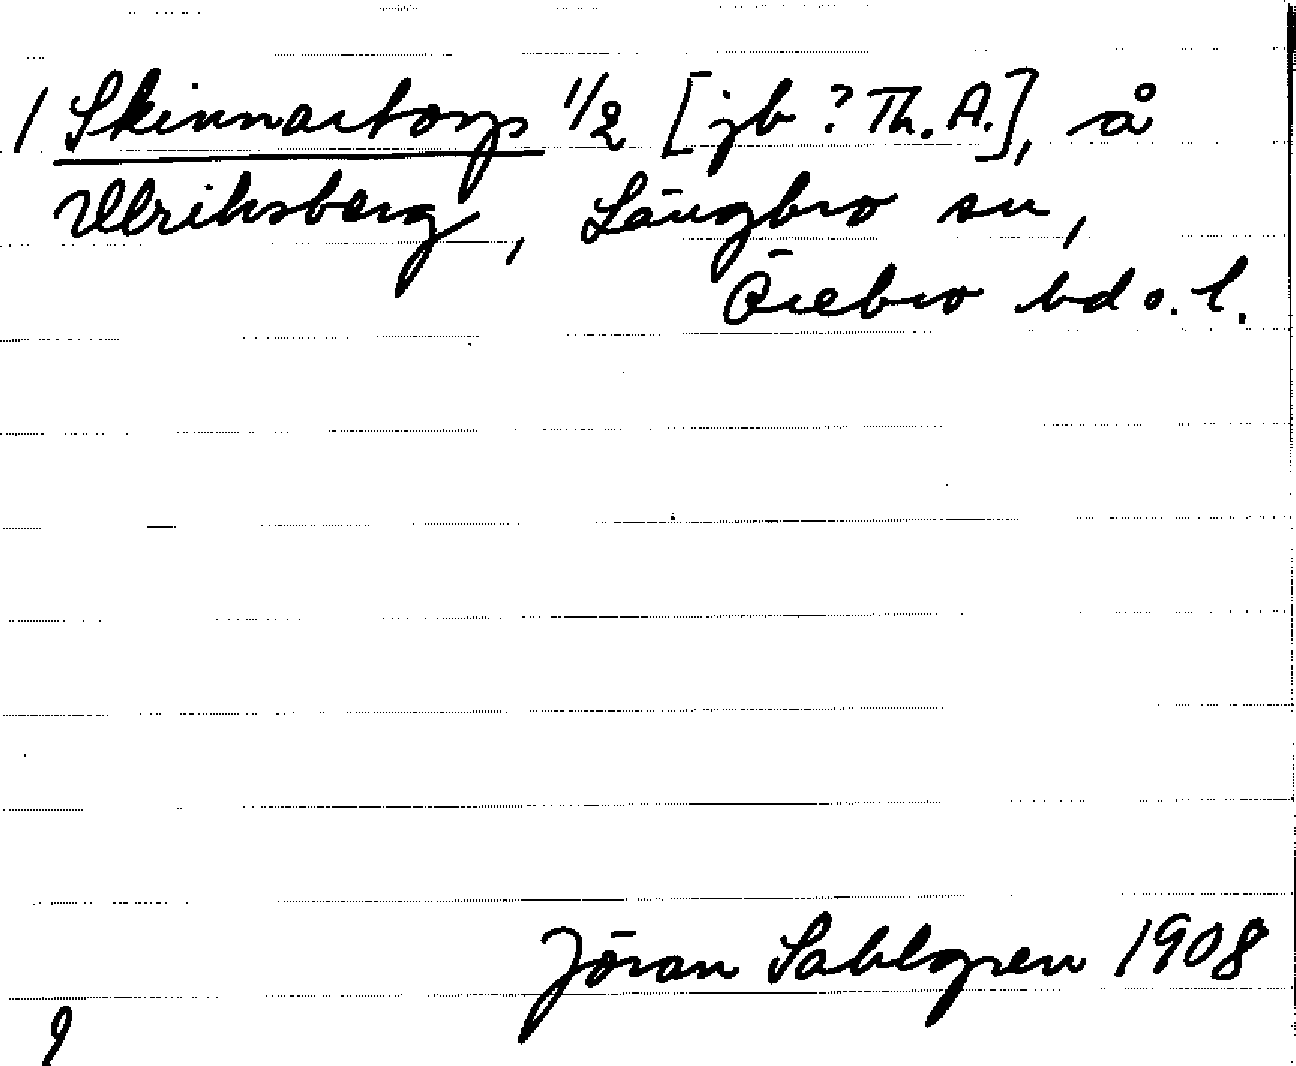 1 Skinnartorp 1/2 [jb ? Th. A.], å
Ulriksberg, Längbro sn,
Örebro hd o. l.
Jöran Sahlgren 1908